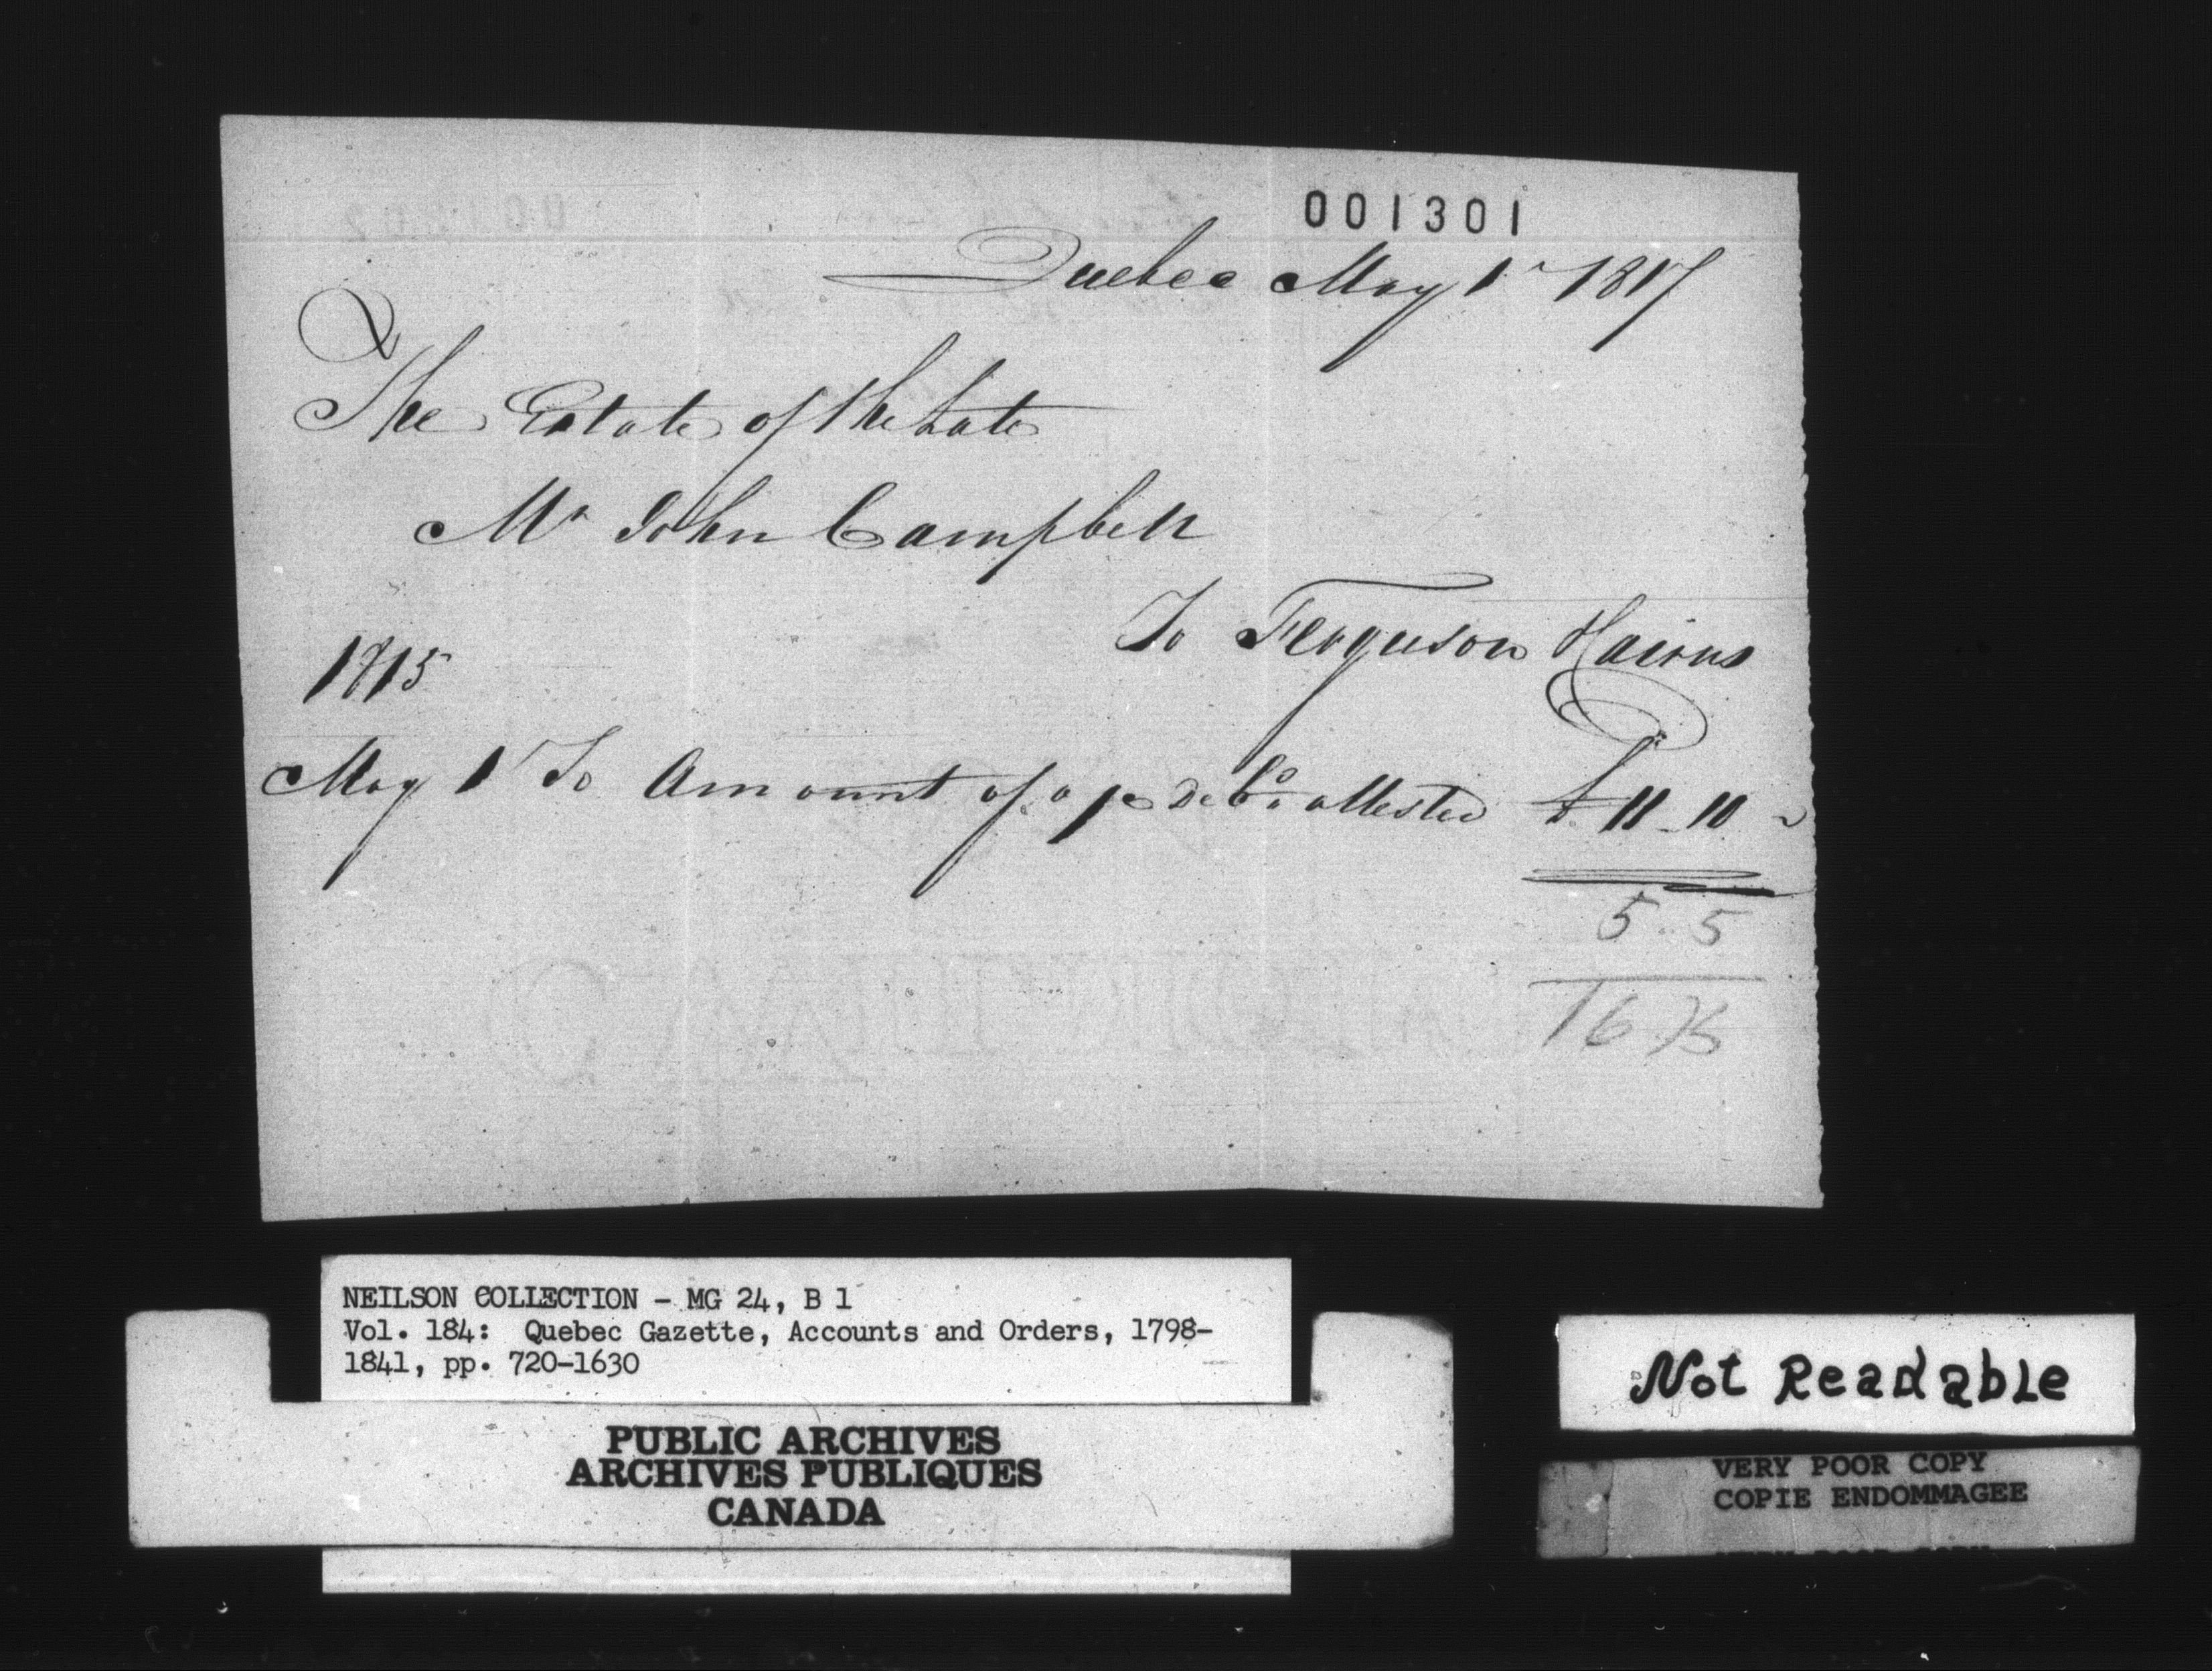 001301
Quebec May 1st 1817
The Estate of the Late
Mr John Campbell
To Ferguson Hairns
1815
May 1 To Amount of a/c attested £ 11 " 10 "
5 .. 5
16 . 15
NEILSON COLLECTION - MG 24, B 1
Vol. 184: Quebec Gazette, Accounts and Orders, 1798-
1841, pp. 720-1630
PUBLIC ARCHIVES
ARCHIVES PUBLIQUES
CANADA
Not Readable
VERY POOR COPY
COPIE ENDOMMAGEE